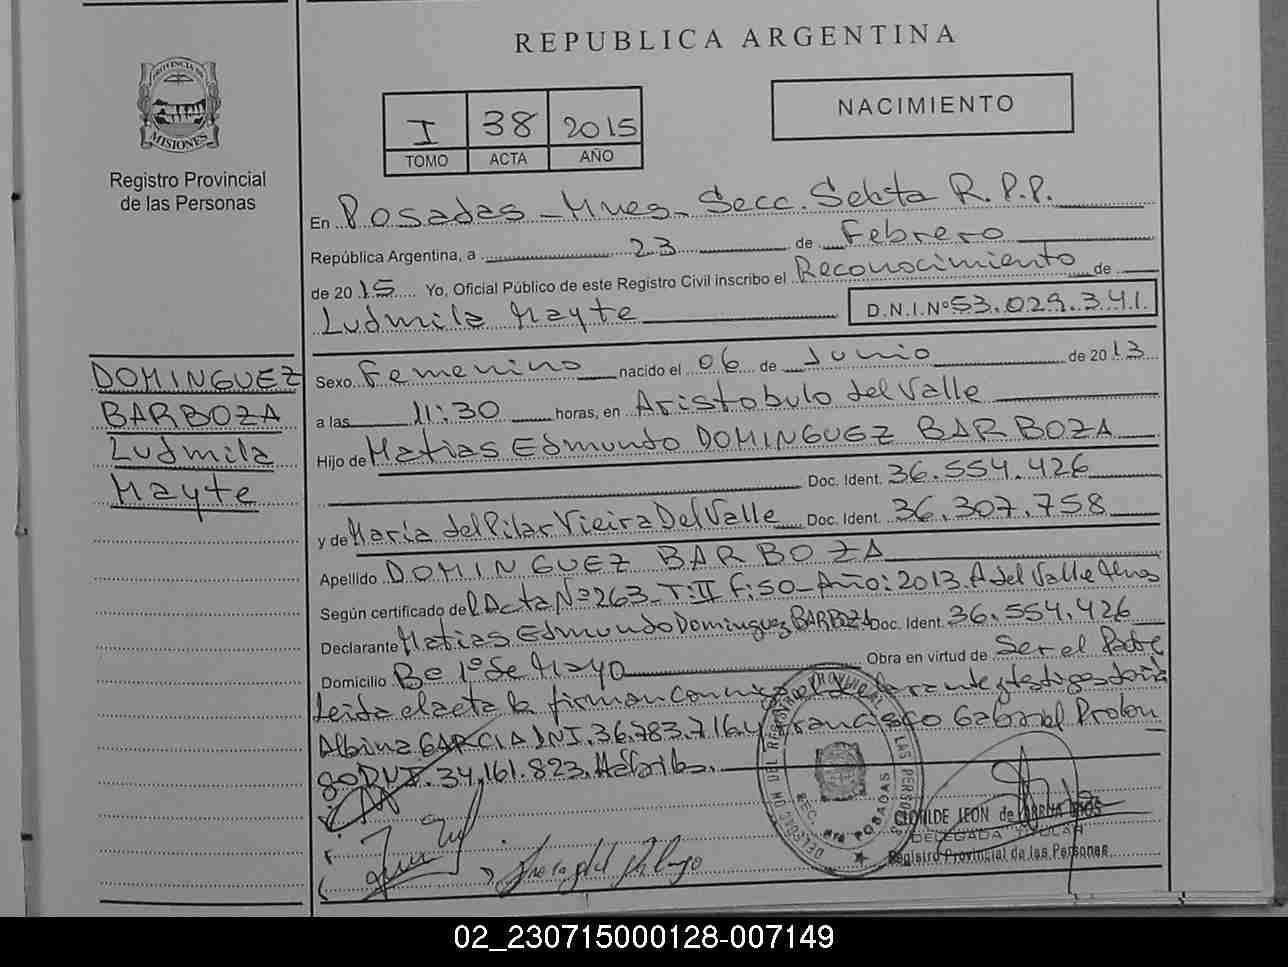 REPUBLICA ARGENTINA
PROVINCIA DE
MISIONES
Registro Provincial
de las Personas
I 38 2015
TOMO ACTA AÑO
NACIMIENTO
En Posadas - Mnes - Secc. Sexta R.P.P.
República Argentina, a 23 de Febrero
de 2015 Yo, Oficial Público de este Registro Civil inscribo el Reconocimiento de
Ludmila Mayte D.N.I.Nº 53.029.341
DOMINGUEZ
BARBOZA
Ludmila
Mayte
Sexo Femenino nacido el 06 de Junio de 2013
a las 11:30 horas, en Aristobulo del Valle
Hijo de Matias Edmundo DOMINGUEZ BARBOZA
Doc. Ident. 36.554.426
y de María del Pilar Vieira Del Valle Doc. Ident. 36.307.758
Apellido DOMINGUEZ BARBOZA
Según certificado del Acta Nº 263 - T:II F:50 - Año: 2013. A del Valle Mnes
Declarante Matias Edmundo Dominguez BARBOZA Doc. Ident. 36.554.426
Domicilio Bº 1º de Mayo Obra en virtud de Ser el Padre
Leida el acta la firman conmigo el declarante y testigos
Albina GARCIA DNI. 36.783.716 y Francisco Gabriel
go DNI. 34.161.823.
DELEGACION DEL REGISTRO PROVINCIAL DE LAS PERSONAS
SEC. 6ta POSADAS
CLOTILDE LEON de
DELEGADA TITULAR
Registro Provincial de las Personas
02_230715000128-007149